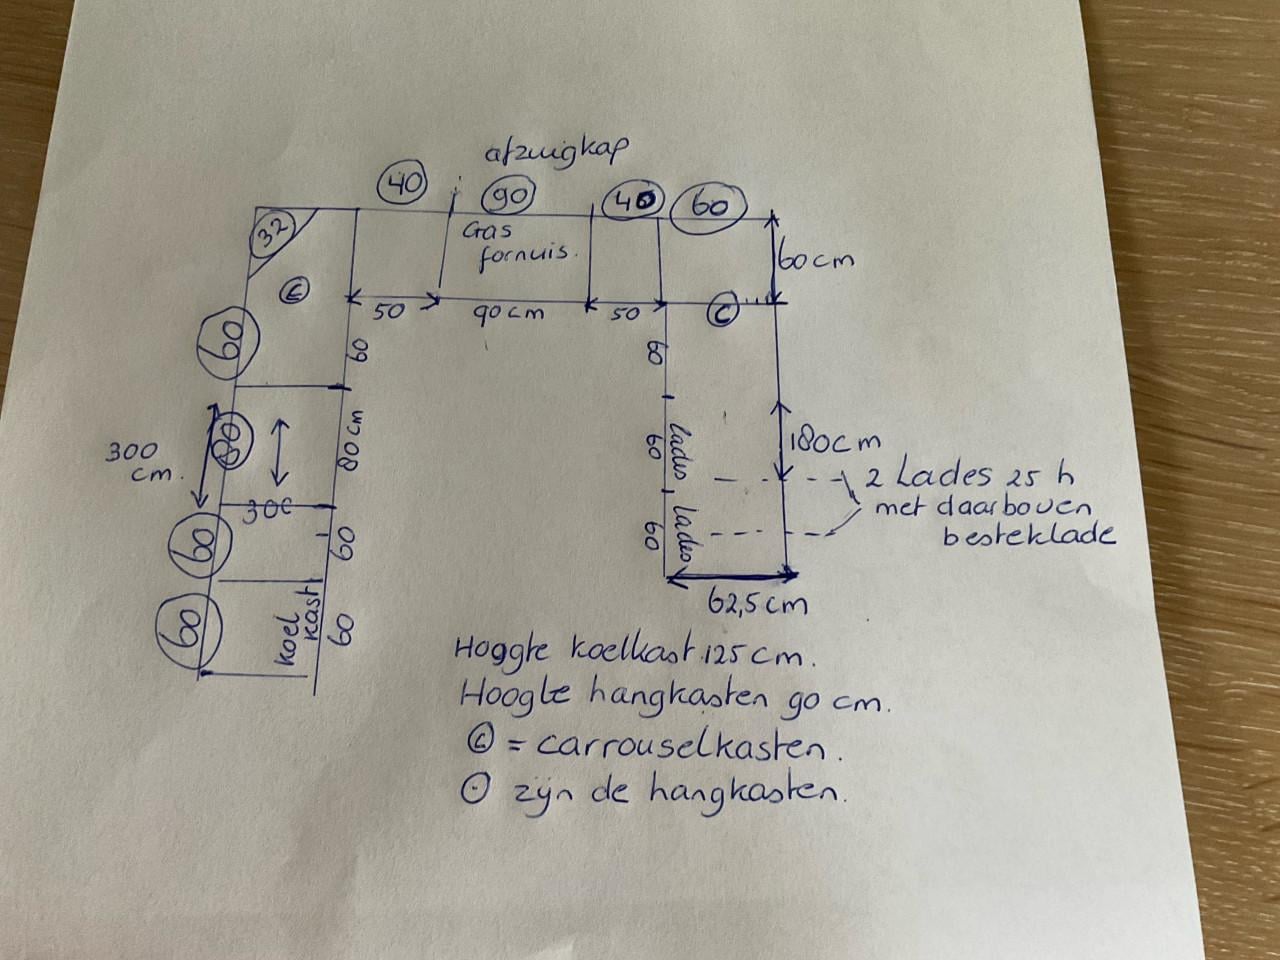 afzuigkap
40
90
40
60
32
Gas
fornuis.
60 cm
C
C
50
90 cm
50
60
60
60
80
80 cm
300
cm.
300
60
60
60
60
koel
kast
60
lades
60
lades
60
180cm
2 Lades 25 h
met daarboven
besteklade
62,5 cm
Hoogte koelkast 125 cm.
Hoogte hangkasten 90 cm.
C = carrouselkasten.
zijn de hangkasten.